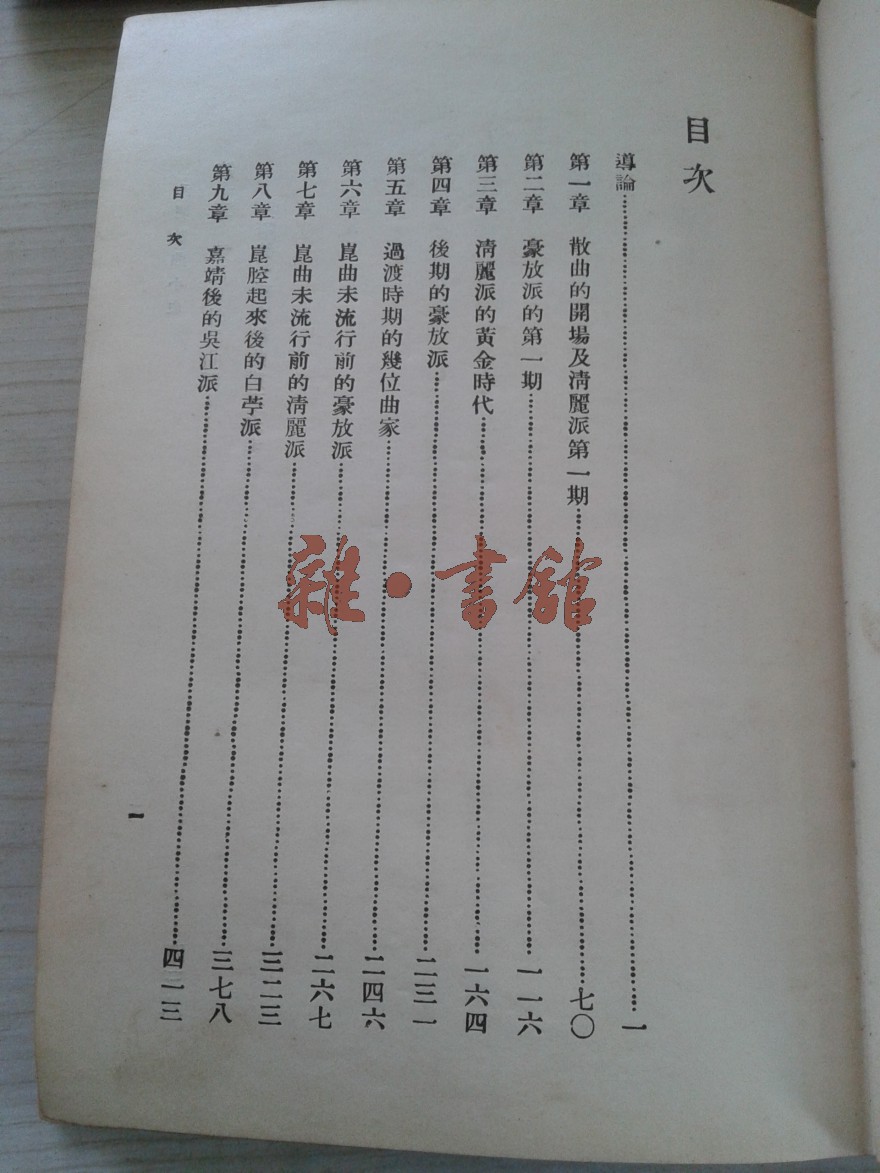 目次
導論……一
第一章 散曲的開場及清麗派第一期……七〇
第二章 豪放派的第一期……一一六
第三章 清麗派的黃金時代……一六四
第四章 後期的豪放派……二三一
第五章 過渡時期的幾位曲家……二四六
第六章 崑曲未流行前的豪放派……二六七
第七章 崑曲未流行前的清麗派……三二三
第八章 崑腔起來後的白苧派……三七八
第九章 嘉靖後的吳江派……四二三
目次
一
雜·書館